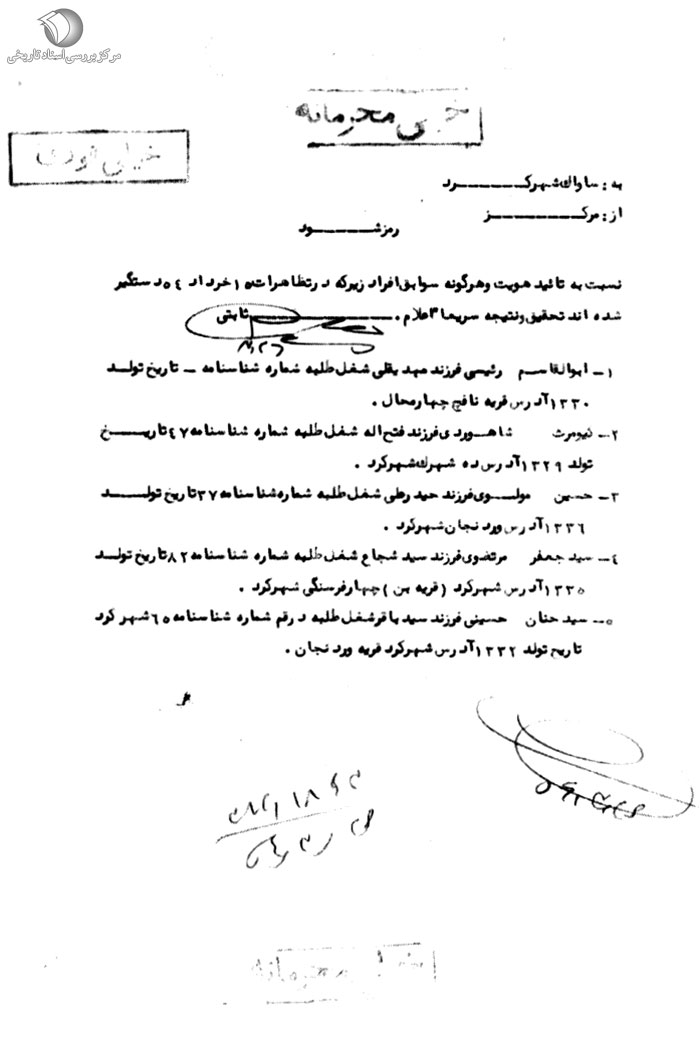 مرکز بررسی اسناد تاریخی
خیلی محرمانه
خیلی فوری
به : ساواك شهركـــــرد
از : مركـــــز
رمز شـــــود
نسبت به تائید هویت و هرگونه سوابق افراد زیر که در تظاهرات ۱۵ خرداد ۵۴ دستگیر
شده اند تحقیق و نتیجه سریعا" اعلام . ثابتی
۱ـ ابوالقاسم رئیسی فرزند مهدیقلی شغل طلبه شماره شناسنامه ـ تاریخ تولد
۱۳۳۰ آدرس قریه نافچ چهارمحال .
۲ـ کیومرث شاهوردی فرزند فتح اله شغل طلبه شماره شناسنامه ۴۷ تاریــخ
تولد ۱۳۲۹ آدرس ده شهرك شهرکرد .
۳ـ حسین مولــوی فرزند حیدرعلی شغل طلبه شماره شناسنامه ۳۷ تاریخ تولــد
۱۳۳۶ آدرس وردنجان شهرکرد .
۴ـ سید جعفر مرتضوی فرزند سید شجاع شغل طلبه شماره شناسنامه ۸۲ تاریخ تولــد
۱۳۳۵ آدرس شهرکرد ( قریه بن ) چهار فرسنگی شهرکرد .
۵ـ سید حنان حسینی فرزند سید باقر شغل طلبه در قم شماره شناسنامه ۶۵ شهرکرد
تاریخ تولد ۱۳۳۲ آدرس شهرکرد قریه وردنجان .
خیلی محرمانه